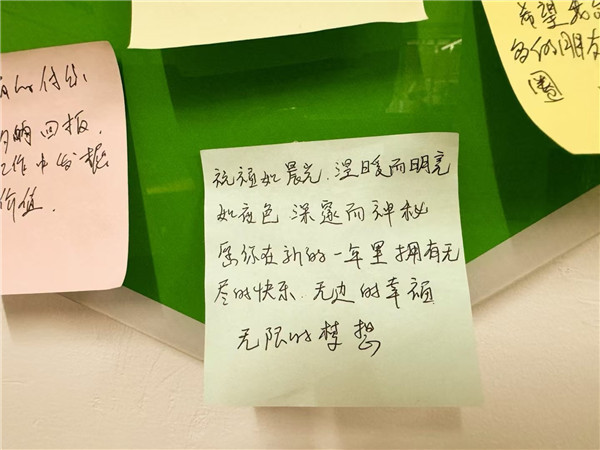 的付出
的回报，
工作中发掘
价值.
祝福如晨光，温暖而明亮
如夜色 深邃而神秘
愿你在新的一年里 拥有无
尽的快乐，无边的幸福
无限的梦想
希望我
的朋友
圈